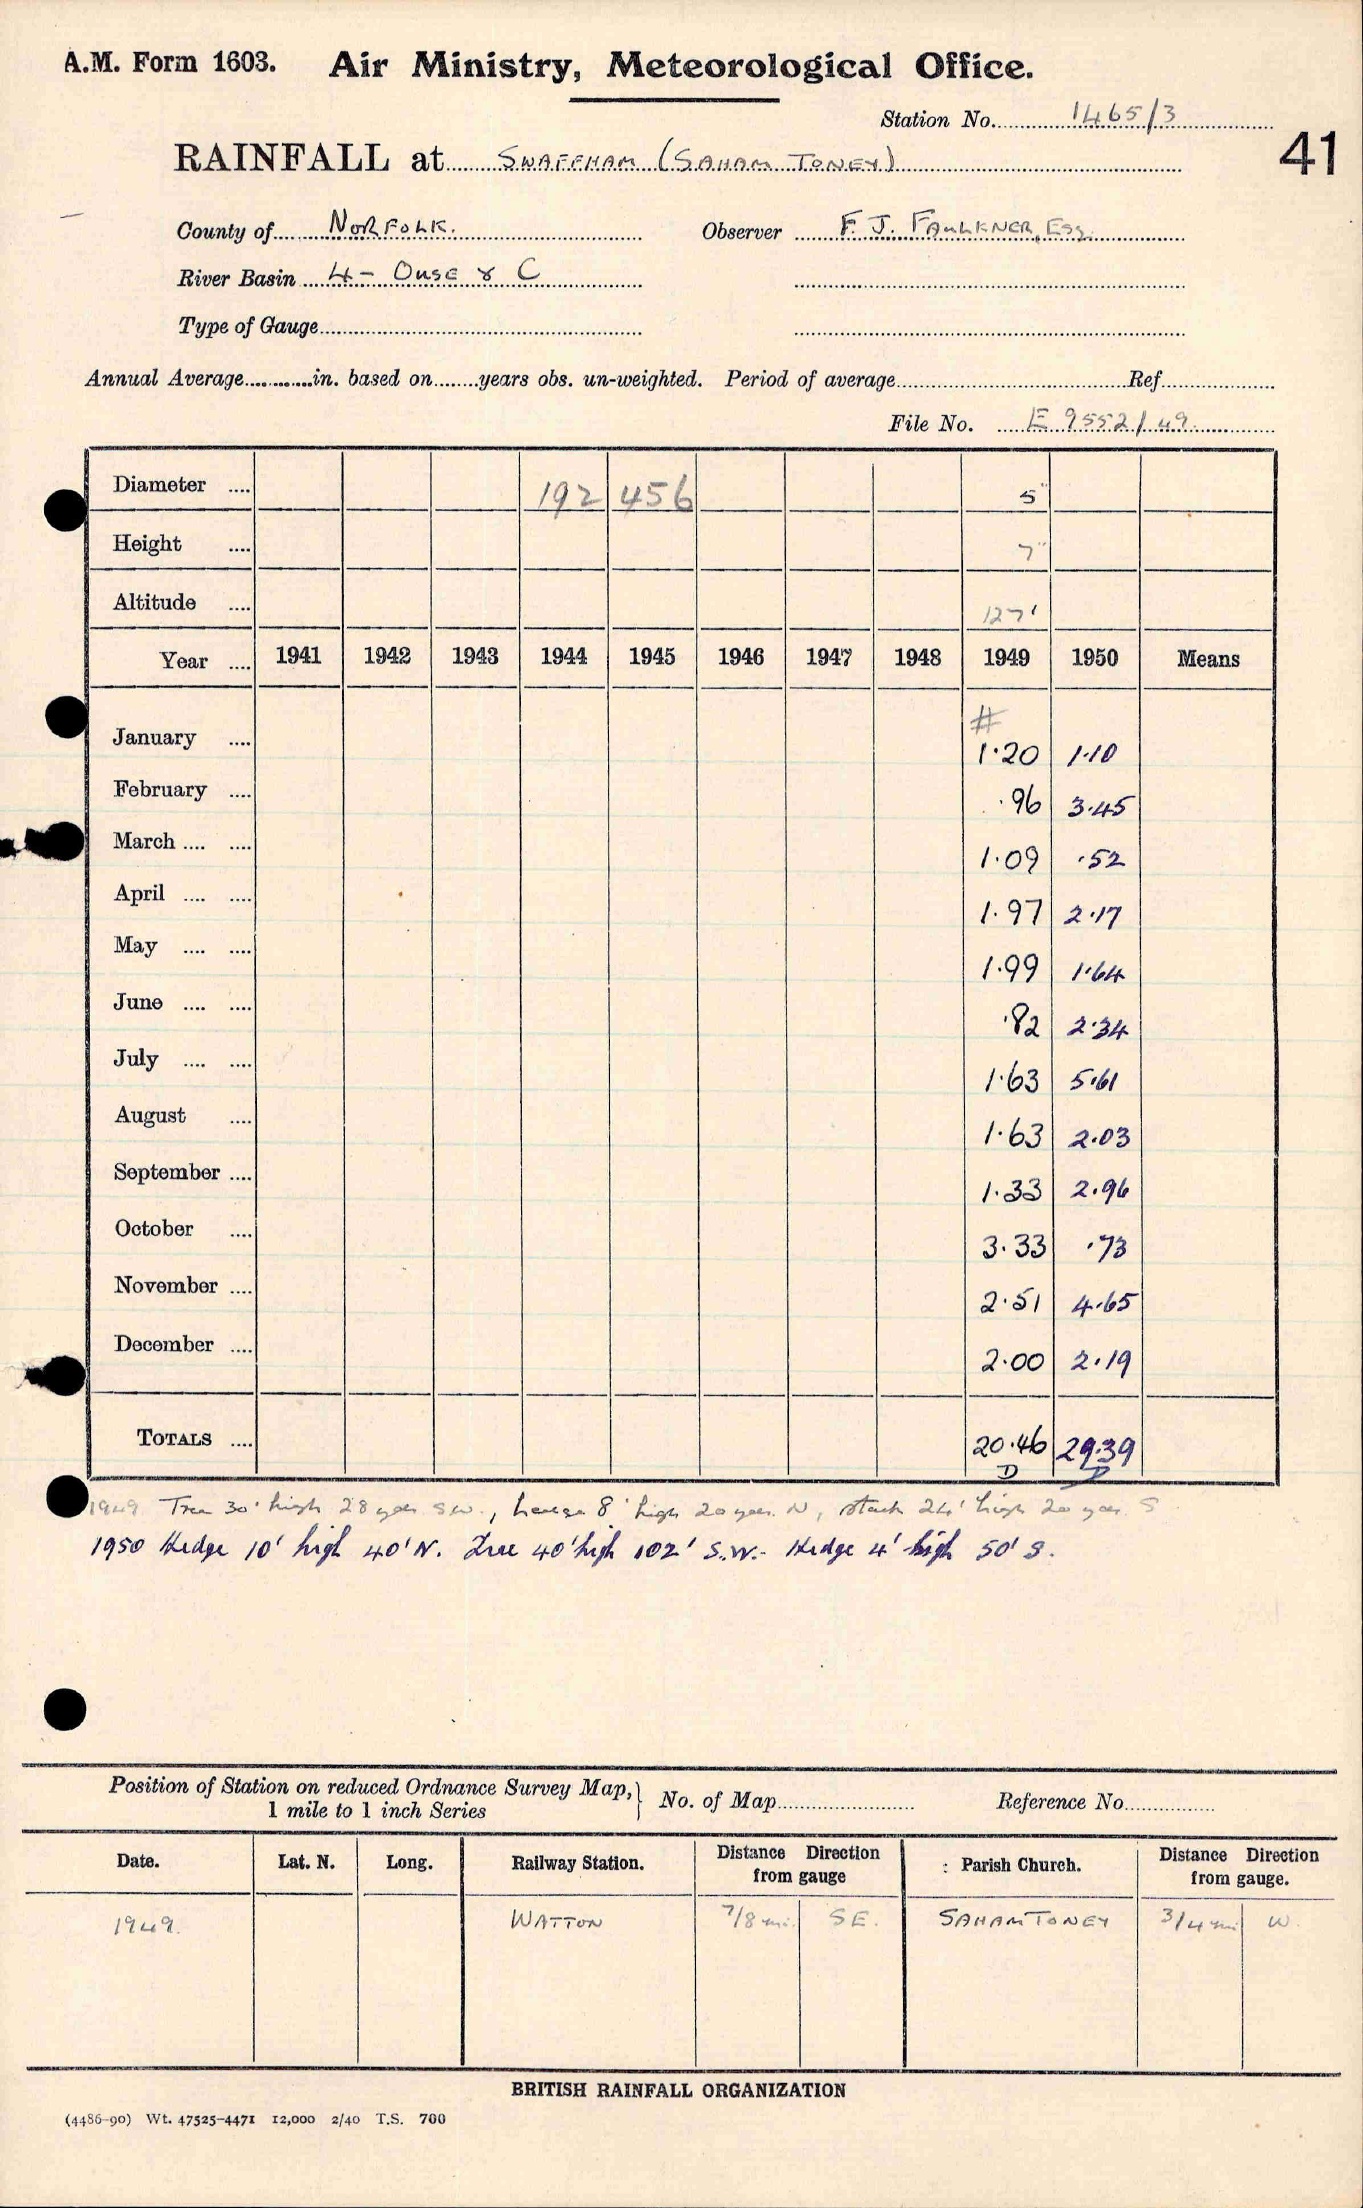 A.M. Form 1603. Air Ministry, Meteorological Office.
Station No. 1465/3
41
RAINFALL at SWAFFHAM (SAHAM TONEY)
County of NORFOLK. Observer F. J. FAULKNER, ESQ.
River Basin 4 - OUSE & C
Type of Gauge
Annual Average in. based on years obs. un-weighted. Period of average Ref
File No. E 9552/49
Diameter 192 456 5"
Height 7"
Altitude 127'
Year 1941 1942 1943 1944 1945 1946 1947 1948 1949 1950 Means
#
January 1·20 1·10
February ·96 3·45
March 1·09 ·52
April 1·97 2·17
May 1·99 1·64
June ·82 2·34
July 1·63 5·61
August 1·63 2·03
September 1·33 2·96
October 3·33 ·73
November 2·51 4·65
December 2·00 2·19
TOTALS 20·46 29·39
D D
1949 Tree 30' high 28 yds S.W., 8' high 20 yds. N, stack 24' high 20 yds S
1950 Hedge 10' high 40' N. Tree 40' high 102' S.W.- Hedge 4' high 50' S.
Position of Station on reduced Ordnance Survey Map,
1 mile to 1 inch Series } No. of Map Reference No.
Date. Lat. N. Long. Railway Station. Distance from gauge Direction Parish Church. Distance from gauge. Direction
1949. WATTON 7/8 mi. S E. SAHAM TONEY 3/4 mi W.
BRITISH RAINFALL ORGANIZATION
(4486-90) Wt. 47525-4471 12,000 2/40 T.S. 700